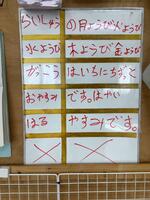 らいしゅう の月ようび火ようび
水ようび 木ようび金ようび
がっこう はいちにちずっと
おやすみ です。はやい
はる やすみです。